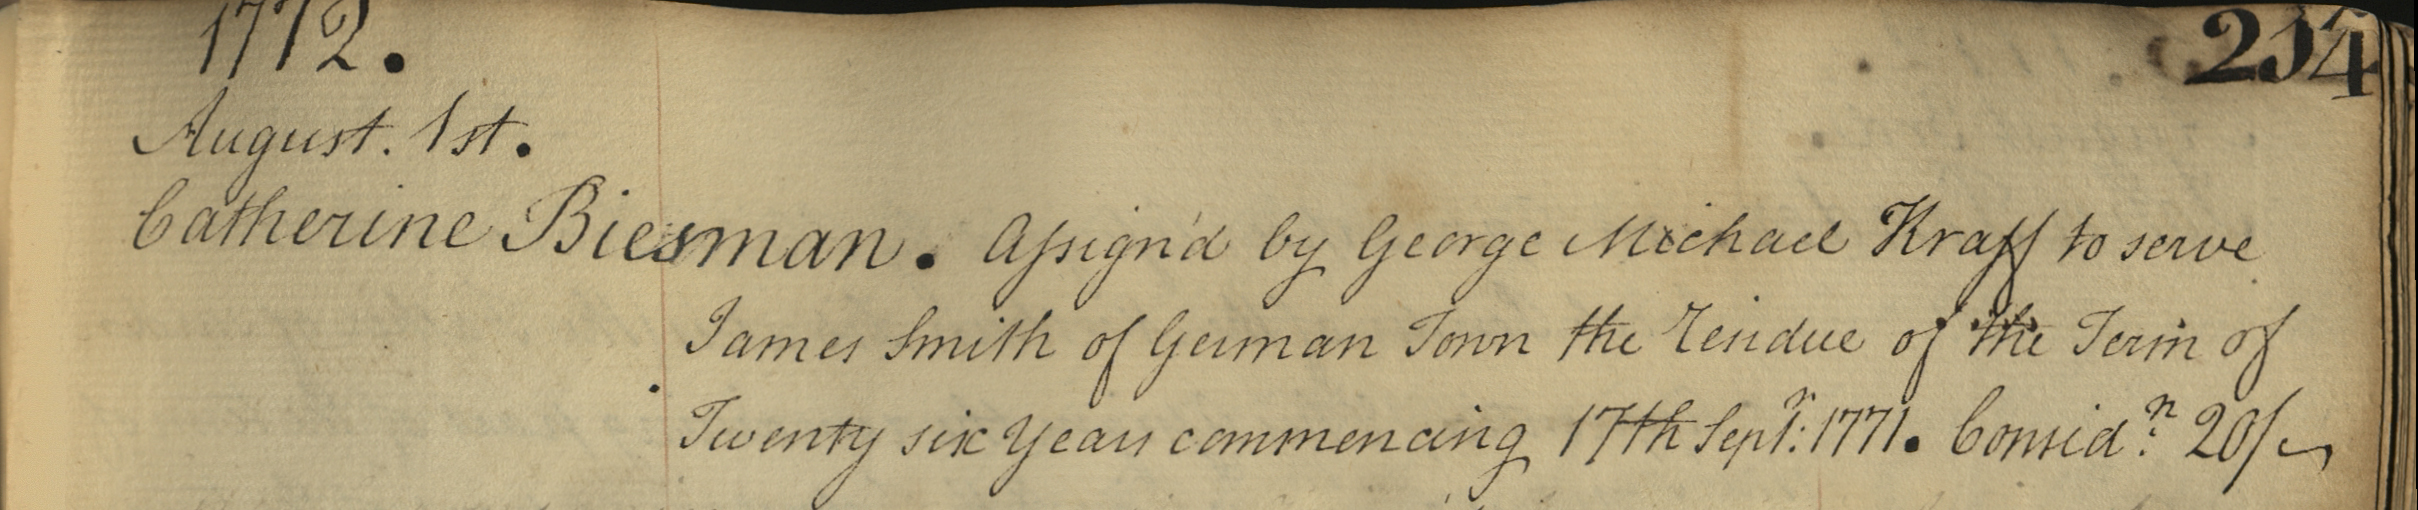 1772.
234
August. 1st.
Catherine Biesman. Assign'd by George Michael Kraff to serve
James Smith of German Town the Residue of the Term of
Twenty six Years commencing 17th Sept.r 1771. Consid.n 20/